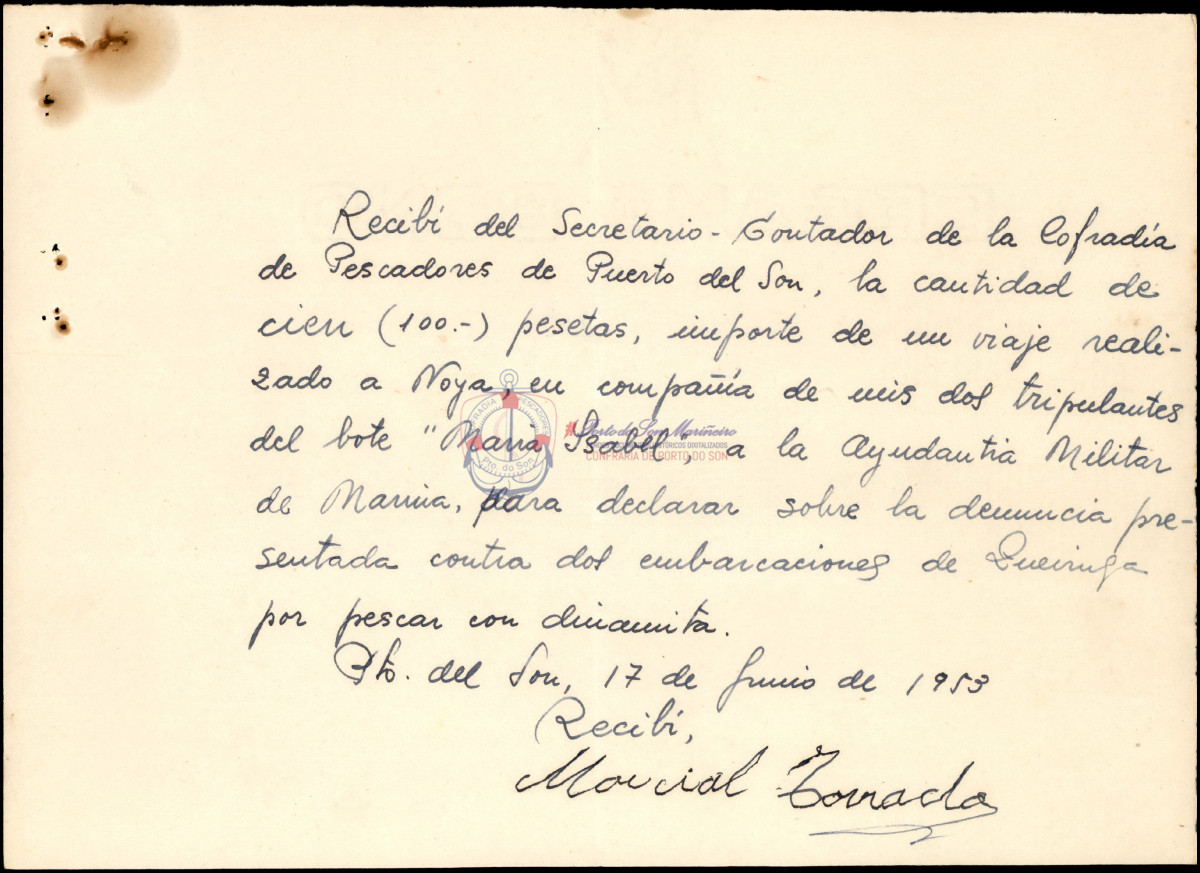 Recibí del Secretario-Contador de la Cofradía
de Pescadores de Puerto del Son, la cantidad de
cien (100.-) pesetas, importe de un viaje reali-
zado a Noya, en compañía de mis dos tripulantes
del bote "María Isabel", a la Ayudantia Militar
de Marina, para declarar sobre la denuncia pre-
sentada contra dos embarcaciones de Queiruga
por pescar con dinamita.
Pto. del Son, 17 de Junio de 1953
Recibí,
Marcial Torrado
COFRADIA PESCADORES
Pto. do Son
Porto do Son Mariñeiro
HISTÓRICOS DIXITALIZADOS
CONFRARÍA DE PORTO DO SON